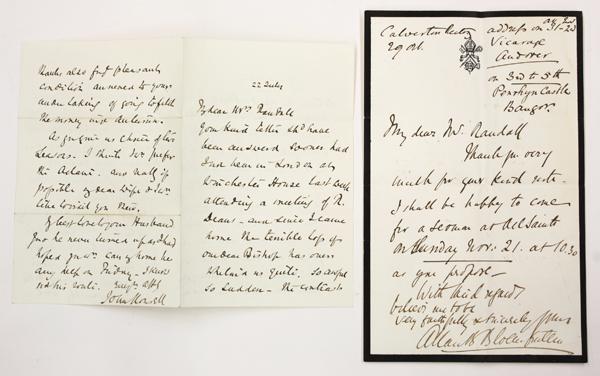 thanks also for pleasant
condition annexed to your
undertaking of going to fetch
the money
As you give us choice of two
Lessons. I think we prefer
the Advent. and
possible my dear Wife &
like to visit you then.
My best love to your Husband
he never turned up as I had
hoped
any help on Friday – I know
John
22 July
My dear Mrs. Randall
Your kind letter shd have
been answered sooner had
I not been in London at
Winchester House last week
attending a meeting of the
Deans – and since I came
home the terrible loss of
our dear Bishop has over
whelmed us quite. So awful
so sudden – the contrasts
29 Oct.
address on 31–2d
Vicarage
Andover
on 3rd to 5th
Penrhyn Castle
Bangor.
My dear Mr. Randall
Thank you very
much for your kind note.
I shall be happy to come
for a sermon at All Saints
on Sunday Nov: 21. at 10.30
as you propose –
With kind regards
believe me to be
very faithfully & sincerely yours
Allan B. Bloemfontein